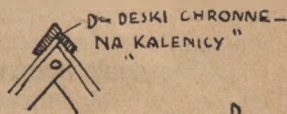 DWIE DESKI CHRONNE
NA KALENICY"